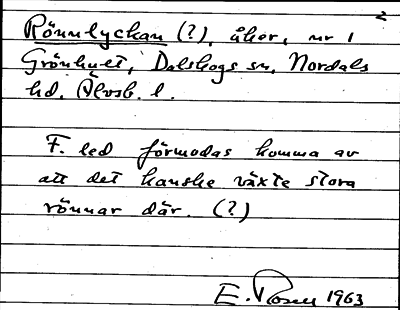 2
Rönnlyckan (?), åker, nr 1
Grönhult, Dalskogs sn, Nordals
hd, Älvsb. l.
F. led förmodas komma av
att det kanske växte stora
rönnar där. (?)
E. Rosen 1963